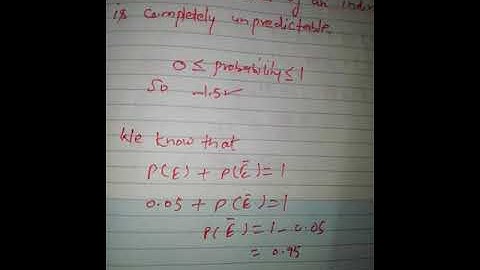 is completely unpredictable.
0 ≤ probability ≤ 1
So -1.5 ✓
We know that
P(E) + P(Ē) = 1
0.05 + P(Ē) = 1
P(Ē) = 1 - 0.05
= 0.95